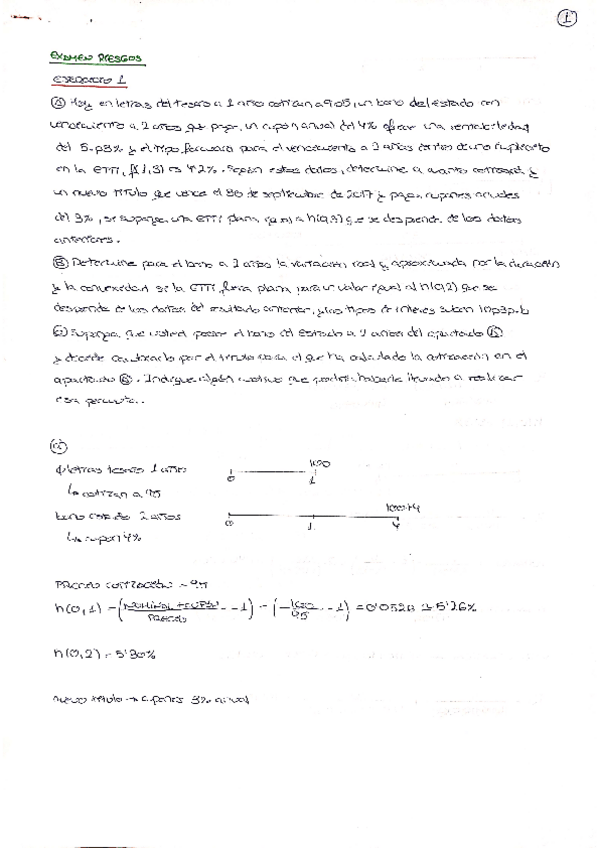 1
EXAMEN RIESGOS
EJERCICIO 1
Ⓐ Hoy en letras del tesoro a 1 año cotizan a 95, un bono del estado con
vencimiento a 2 años que paga un cupón anual del 4% ofrece una rentabilidad
del y el tipo forward para el vencimiento a 3 años dentro de uno implícito
en la ETTI, f(1,3) es 4'2%. Según estos datos, determine a cuanto cotizará
un nuevo título que vence el 30 de septiembre de 2017 y paga cupones anuales
del 3%, se suponga una ETTI plana igual a h(0,3) que se desprende de los datos
anteriores.
Ⓑ Determine para el bono a 2 años la variación real y aproximada por la duración
y la convexidad si la ETTI fuera plana para un valor igual al h(0,2) que se
desprende de los datos del resultado anterior, y los tipos de interés suben
Ⓒ Suponga que usted posee el bono del Estado a 2 años del apartado Ⓐ
y decide cambiarlo por el título para el que ha calculado la cotización en el
apartado Indique algún motivo que podría haberle llevado a realizar
esa permuta.
ⓐ
letras tesoro 1 año
↳ cotizan a 95
0 1 100
bono estado 2 años
↳ cupón 4%
0 1
PRECIO COTIZACIÓN
h(0,1) = (NOMINAL + CUPÓN / PRECIO - 1) = (100 / 95 - 1) = 0'0526 → 5'26%
h(0,2) = 5'30%
nuevo título → cupones 3% anual